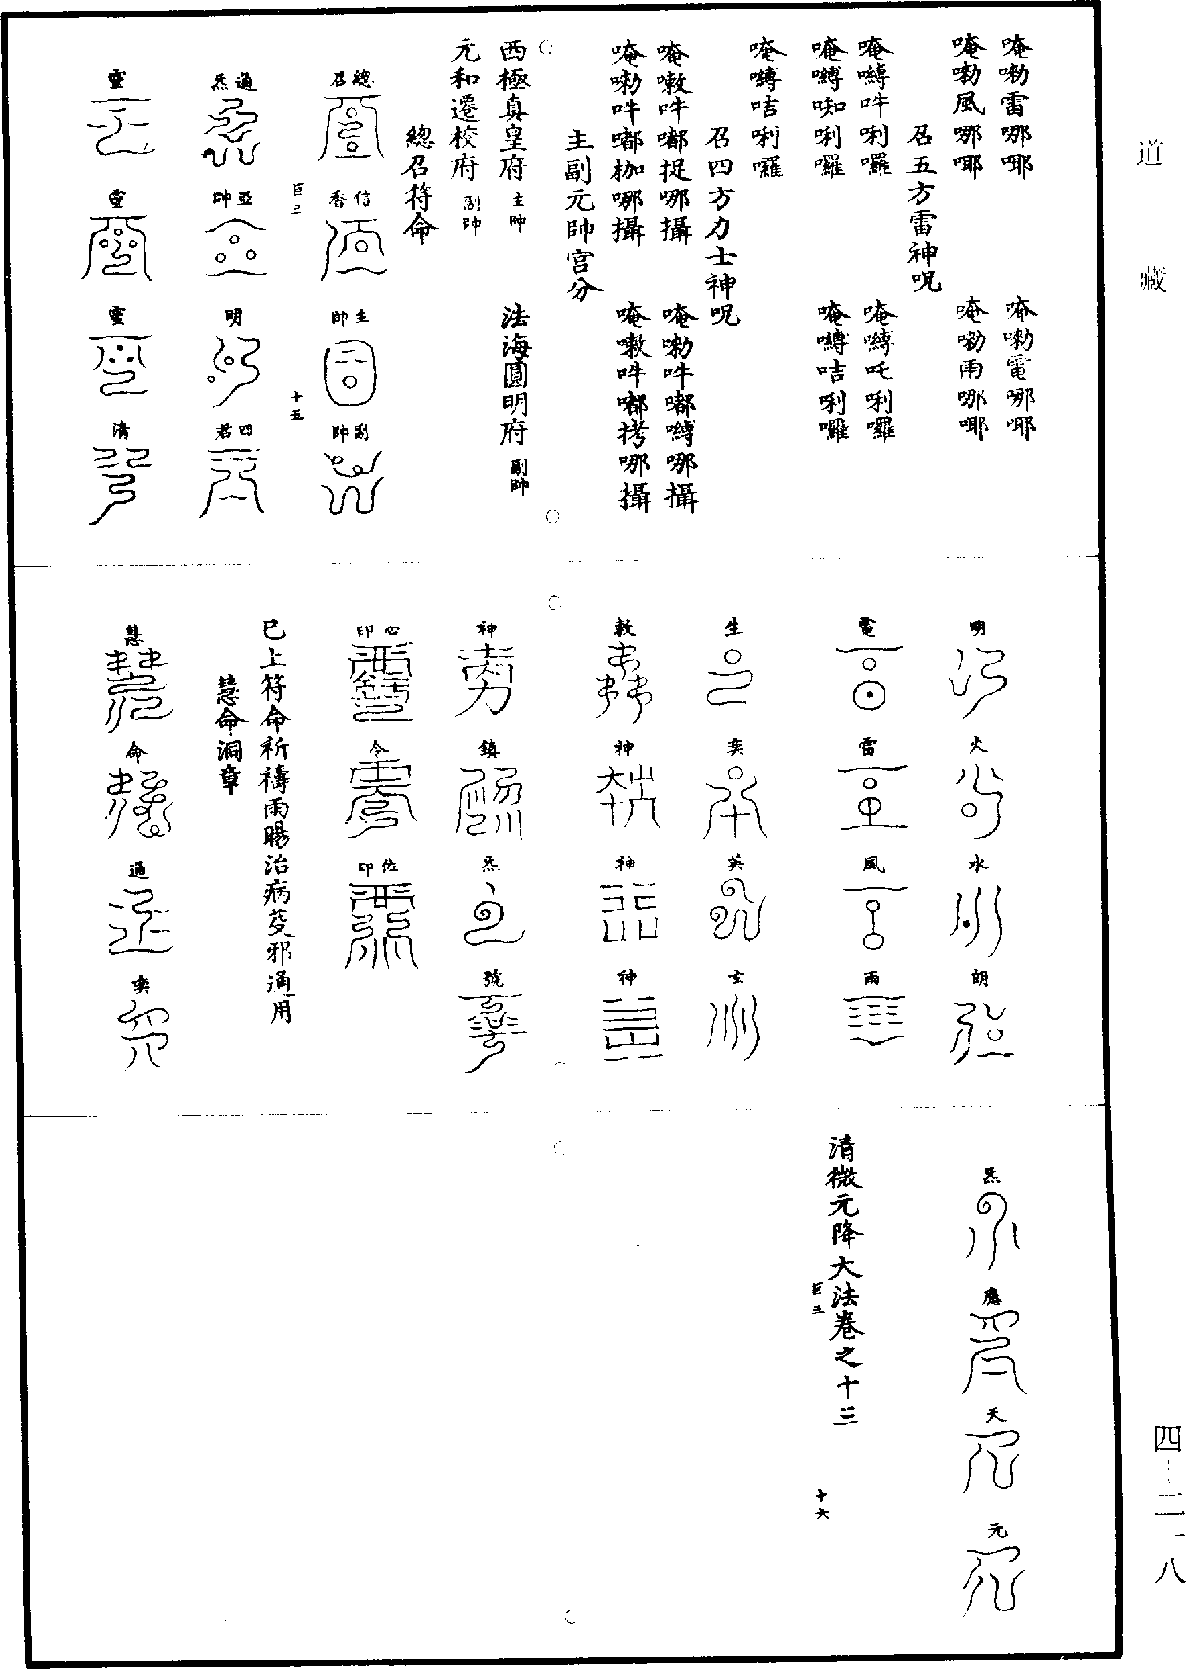 道藏
唵嘞雷哪耶 唵嘞電哪耶
唵嘞風哪耶 唵嘞雨哪耶
召五方雷神呪
唵嚩吽唎囉 唵嚩吒唎囉
唵嚩㗌唎囉 唵嚩咭唎囉
唵嚩咭唎囉
召四方力士神呪
唵㗜吽嘟捉哪攝 唵嘞吽嘟嚩哪攝
唵嘞吽嘟枷哪攝 唵㗜吽嘟拷哪攝
主副元帥宫分
西極真皇府 主帥 法海圓明府 副帥
元和遷校府 副帥
總召符命
總召 信香 主帥 副帥
巨三 十五
通炁 亞帥 明 四君
靈 靈 靈 清
明 火 水 朗
電 雷 風 雨
生 奕 英 玄
敕 神 神 神
神 鎮 炁 號
心印 令 佐印
已上符命祈禱雨暘治病芟邪通用
慧命洞章
慧 命 通 奕
炁 應 天 元
清微元降大法卷之十三
巨三 十六
四-二一八